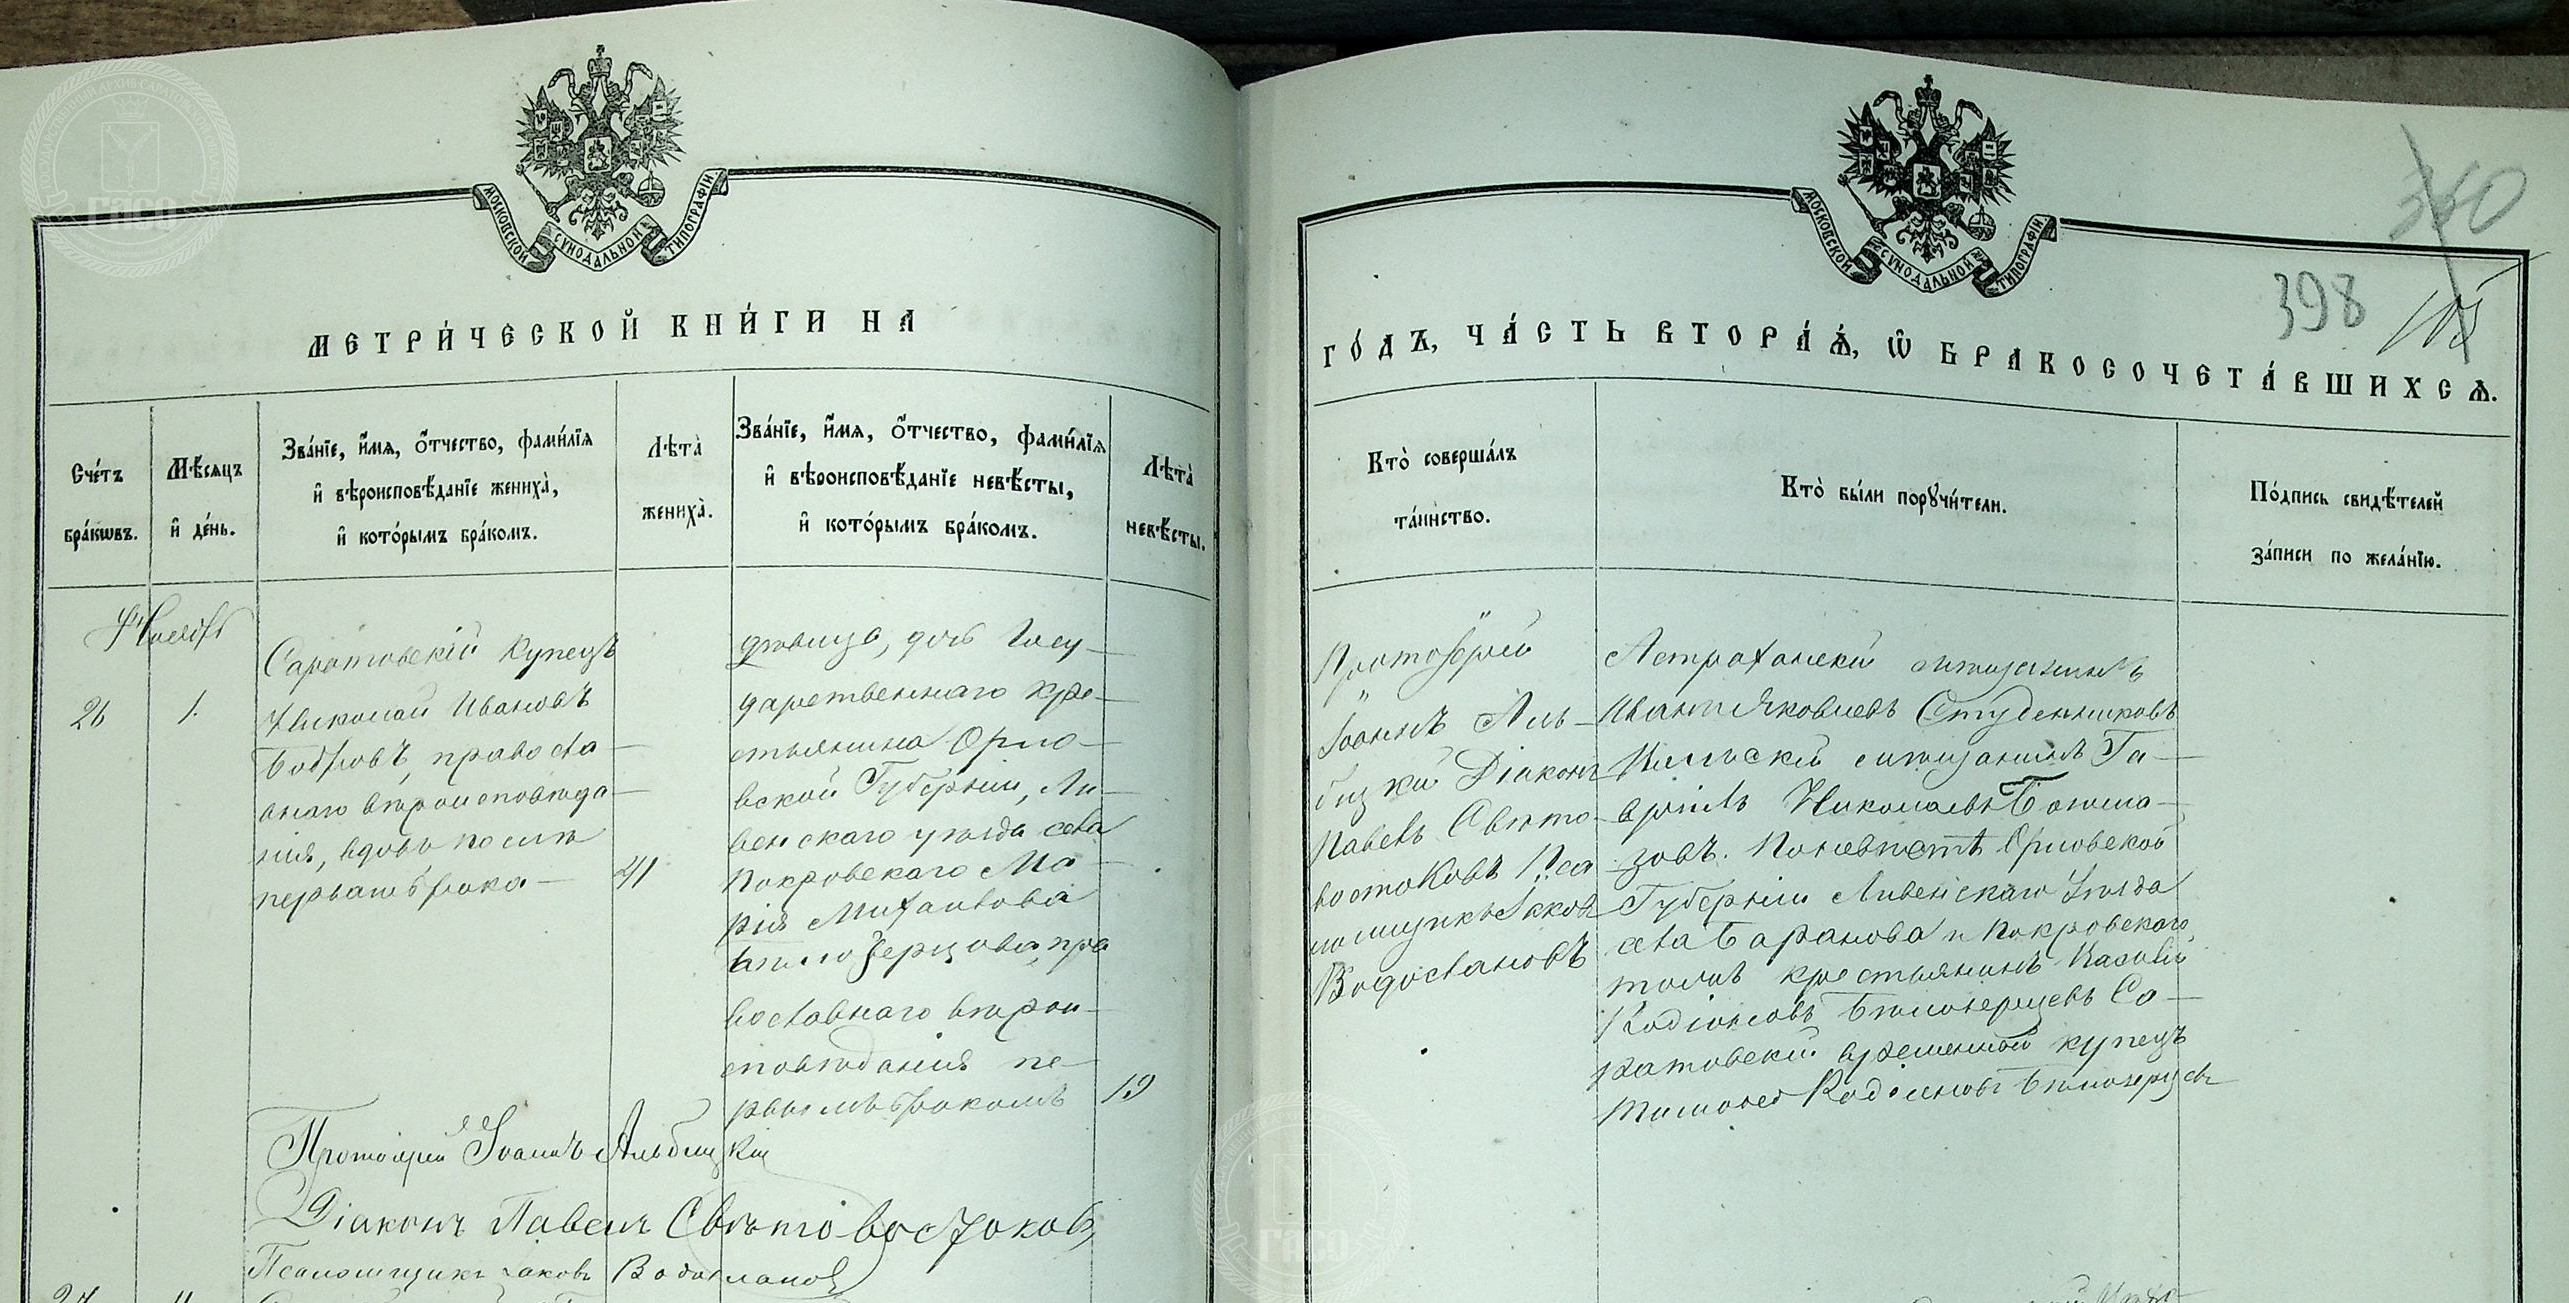 МОСКОВСКОЙ СѴНОДАЛЬНОЙ ТИПОГРАФІИ
МЕТРИ́ЧЕСКОЙ КНИ́ГИ НА
Сче́тъ бра́кѡвъ.
Мѣ́сяцъ и҆ де́нь.
Зва́нїе, и҆́мѧ, ѻ҆́тчество, фами́лїѧ
и҆ вѣроисповѣ́данїе жениха̀,
и҆ кото́рымъ бра́комъ.
Лѣта̀
жениха̀.
Зва́нїе, и҆́мѧ, ѻ҆́тчество, фами́лїѧ
и҆ вѣроисповѣ́данїе невѣ́сты,
и҆ кото́рымъ бра́комъ.
Лѣта̀
невѣ́сты.
26
1.
Саратовскій купецъ
Николай Ивановъ
Бобровъ, правосла-
внаго вѣроисповѣда-
нія, вдовъ послѣ
перваго брака-
41
дѣвица, дочь Госу-
дарственнаго кре-
стьянина Орло-
вской Губерніи, Ли-
венскаго уѣзда села
Покровскаго Ма-
рія Михаилова
Бѣлозерцова, пра
вославнаго вѣрои-
сповѣданія пе-
рвымъ бракомъ
19
Протоіерей Іоаннъ Альбицкій
Діаконъ Павелъ Свѣтовостоковъ
Псаломщикъ Іаковъ Водолановъ
27
11
МОСКОВСКОЙ СѴНОДАЛЬНОЙ ТИПОГРАФІИ
360
398
105
ГО́ДЪ, ЧА́СТЬ ВТОРА́Ѧ, Ѡ҆ БРАКОСОЧЕТА́ВШИХСѦ.
Кто̀ соверша́лъ
та́инство.
Кто̀ бы́ли порꙋчи́тели.
По́дпись свидѣ́телей
за́писи по жела́нїю.
Протоіерей
Іоаннъ Аль-
бицкій Діаконъ
Павелъ Свѣто-
востоковъ Пса
ломщикъ Іаковъ
Астраханскій мѣщанинъ
Иванъ Яковлевъ Студенниковъ
мѣщанинъ Га-
вріилъ Николаевъ
зовъ. По невѣстѣ Орловской
Губерніи Ливенскаго Уѣзда
села Баранова и Покровскаго
тожъ крестьянинъ
Родіоновъ Бѣлозерцевъ Са-
ратовскій временной купецъ
Тимофей Родіоновъ Бѣлозерцевъ